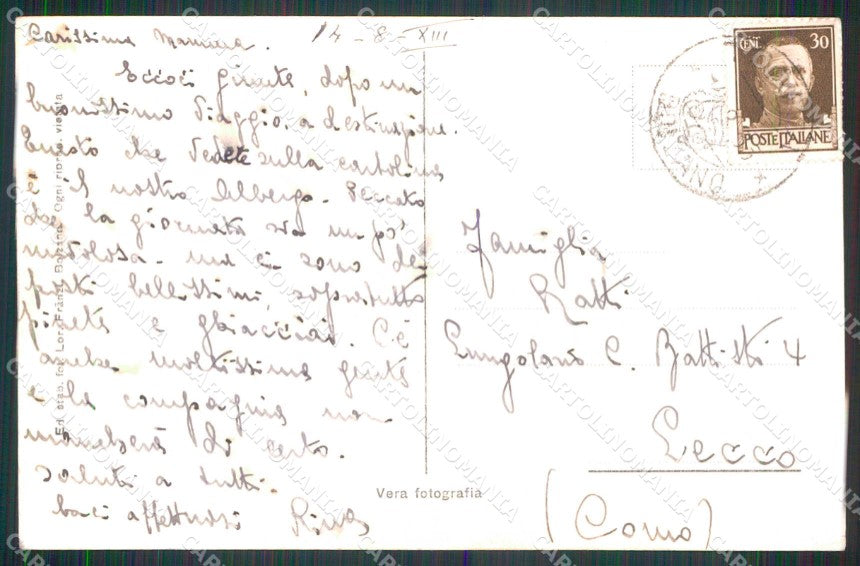 Carissima Mamma. 14-8-XIII
Eccoci giunte, dopo un
buonissimo viaggio, a destinazione.
Questo che vedete sulla cartolina
è il nostro Albergo. Peccato
che la giornata sia un po'
nuvolosa. ma ci sono dei
posti bellissimi, soprattutto
pinete e ghiacciai. C'è
anche moltissima gente
e la compagnia non
mancherà di certo.
saluti a tutti.
baci affettuosi Rina
Ed. stab. fot. Lor. Fränzl Bolzano Ogni riprod. vietata
Vera fotografia
CENT. 30
POSTE ITALIANE
BOLZANO
Famiglia
Ratti
Lungolario C. Battisti 4
Lecco
(Como)
CARTOLINOMANIA